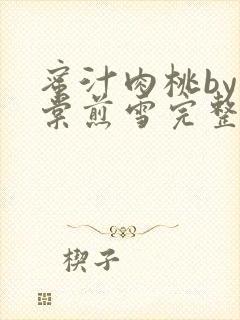 蜜汁肉桃by
棠煎雪完整
楔子